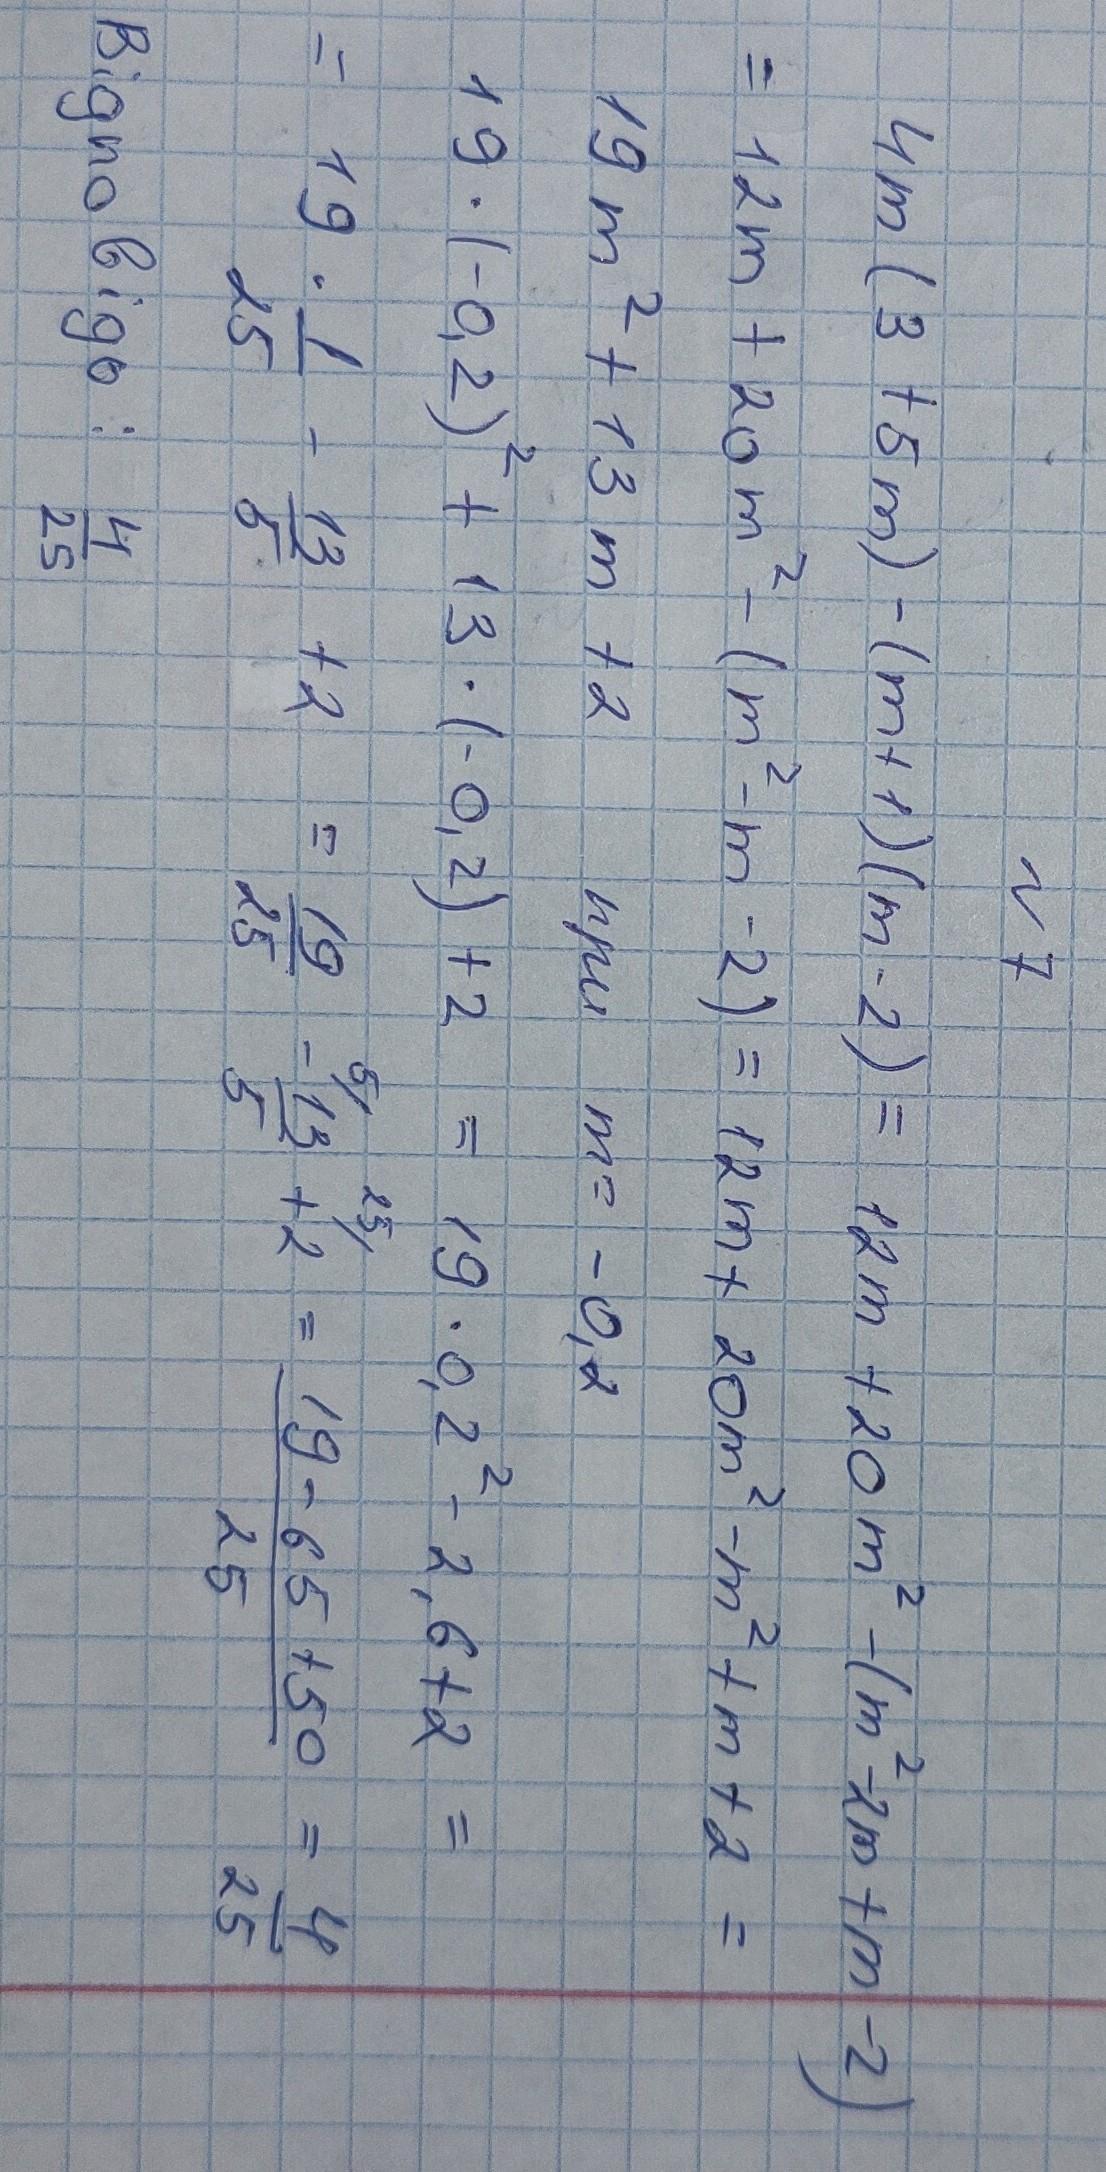 №7
4m(3+5m)-(m+1)(m-2) = 12m+20m²-(m²-2m+m-2)
= 12m+20m²-(m²-m-2) = 12m+20m²-m²+m+2 =
19m²+13m+2 при m=-0,2
19·(-0,2)²+13·(-0,2)+2 = 19·0,2²-2,6+2 =
= 19·1/25 - 13/5 +2 = 19/25 - 5/ 13/5 + 25/ 2 = (19-65+50)/25 = 4/25
Відповідь: 4/25